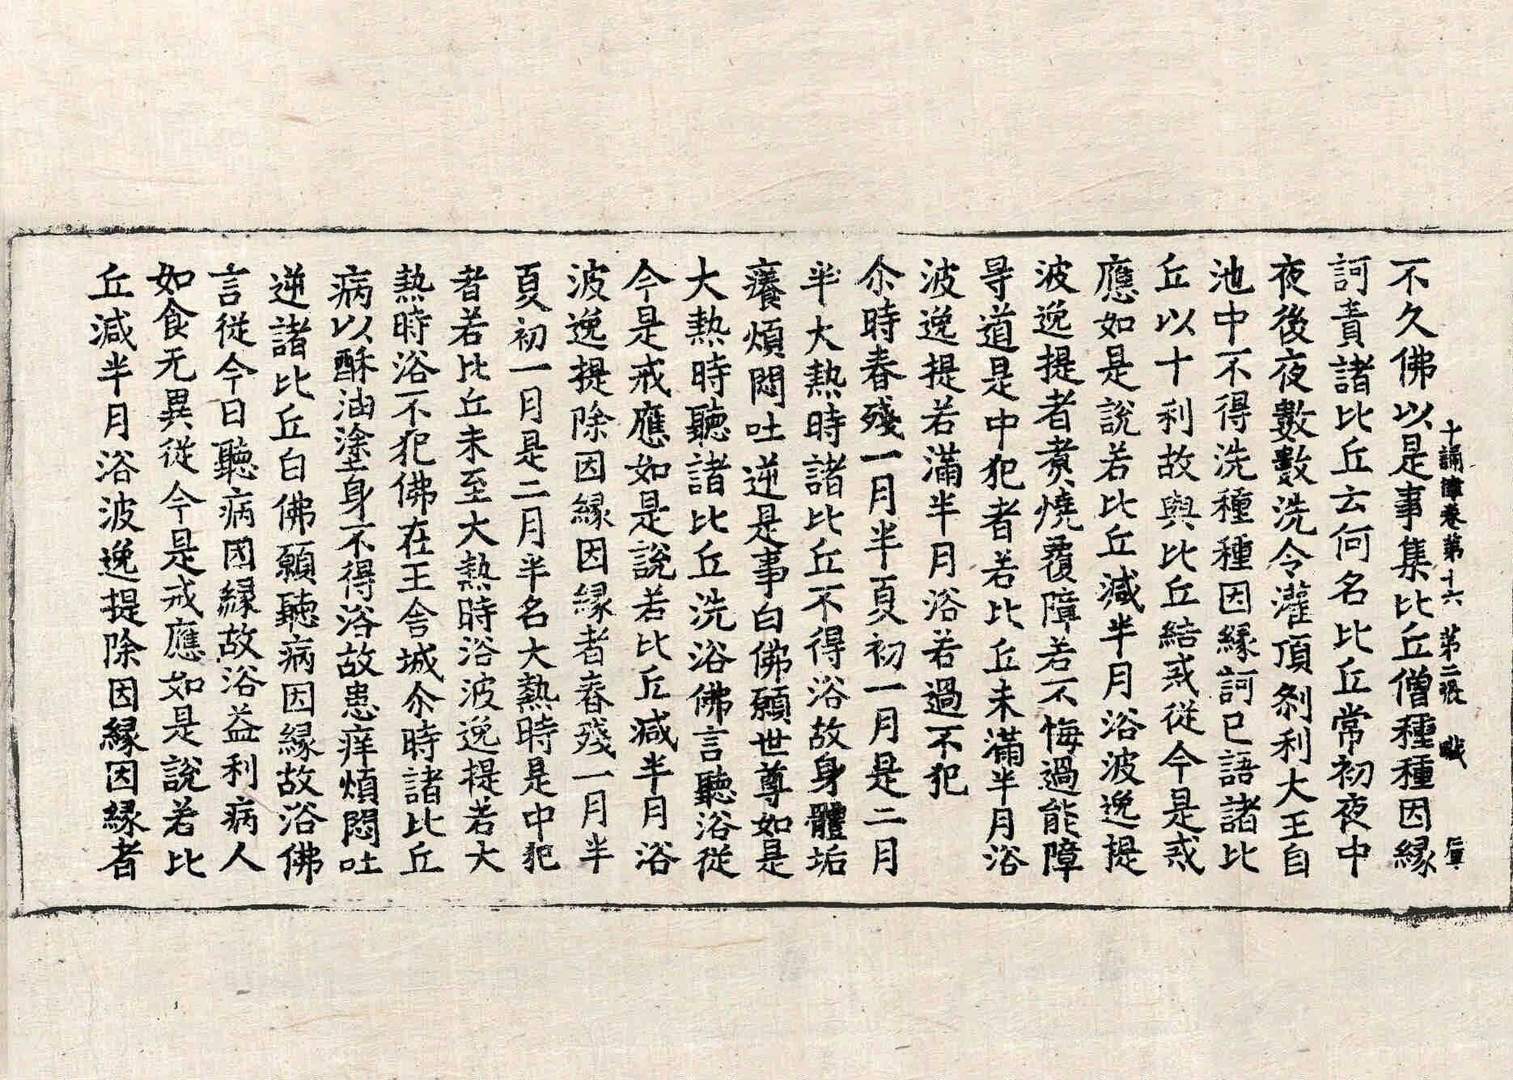 十誦律卷第十六 第二張 職
不久佛以是事集比丘僧種種因緣
訶責諸比丘云何名比丘常初夜中
夜後夜數數洗令灌頂刹利大王自
池中不得洗種種因緣訶已語諸比
丘以十利故與比丘結戒從今是戒
應如是說若比丘減半月浴波逸提
波逸提者煑燒覆障若不悔過能障
㝵道是中犯者若比丘未滿半月浴
波逸提若滿半月浴若過不犯
尒時春殘一月半夏初一月是二月
半大熱時諸比丘不得浴故身體垢
癢煩悶吐逆是事白佛願世尊如是
大熱時聽諸比丘洗浴佛言聽浴從
今是戒應如是說若比丘減半月浴
波逸提除因緣因緣者春殘一月半
夏初一月是二月半名大熱時是中犯
者若比丘未至大熱時浴波逸提若大
熱時浴不犯佛在王舍城尒時諸比丘
病以酥油塗身不得浴故患痒煩悶吐
逆諸比丘白佛願聽病因緣故浴佛
言從今日聽病因緣故浴益利病人
如食无異從今是戒應如是說若比
丘減半月浴波逸提除因緣因緣者